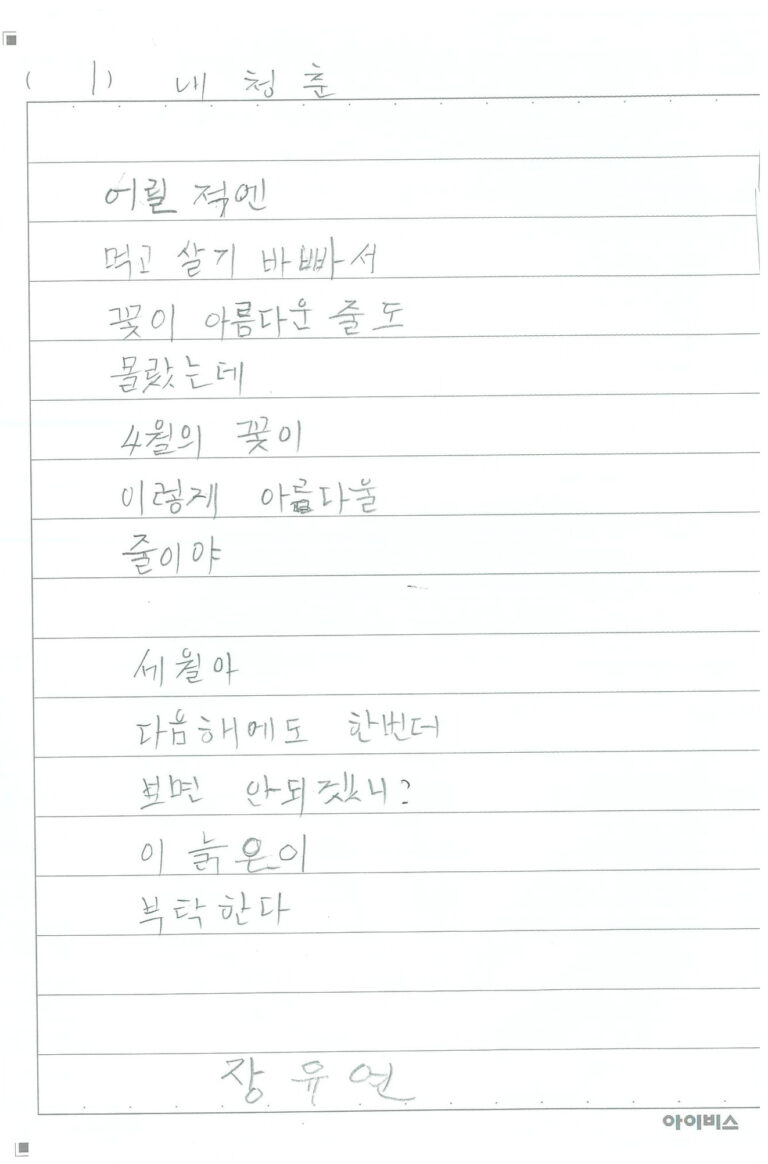 ( 1) 내 청춘
어릴 적엔
먹고 살기 바빠서
꽃이 아름다운 줄도
몰랐는데
4월의 꽃이
이렇제 아름다울
줄이야
세월아
다음해에도 한번더
보면 안되겠니?
이 늙은이
부탁한다
장유연
아이비스